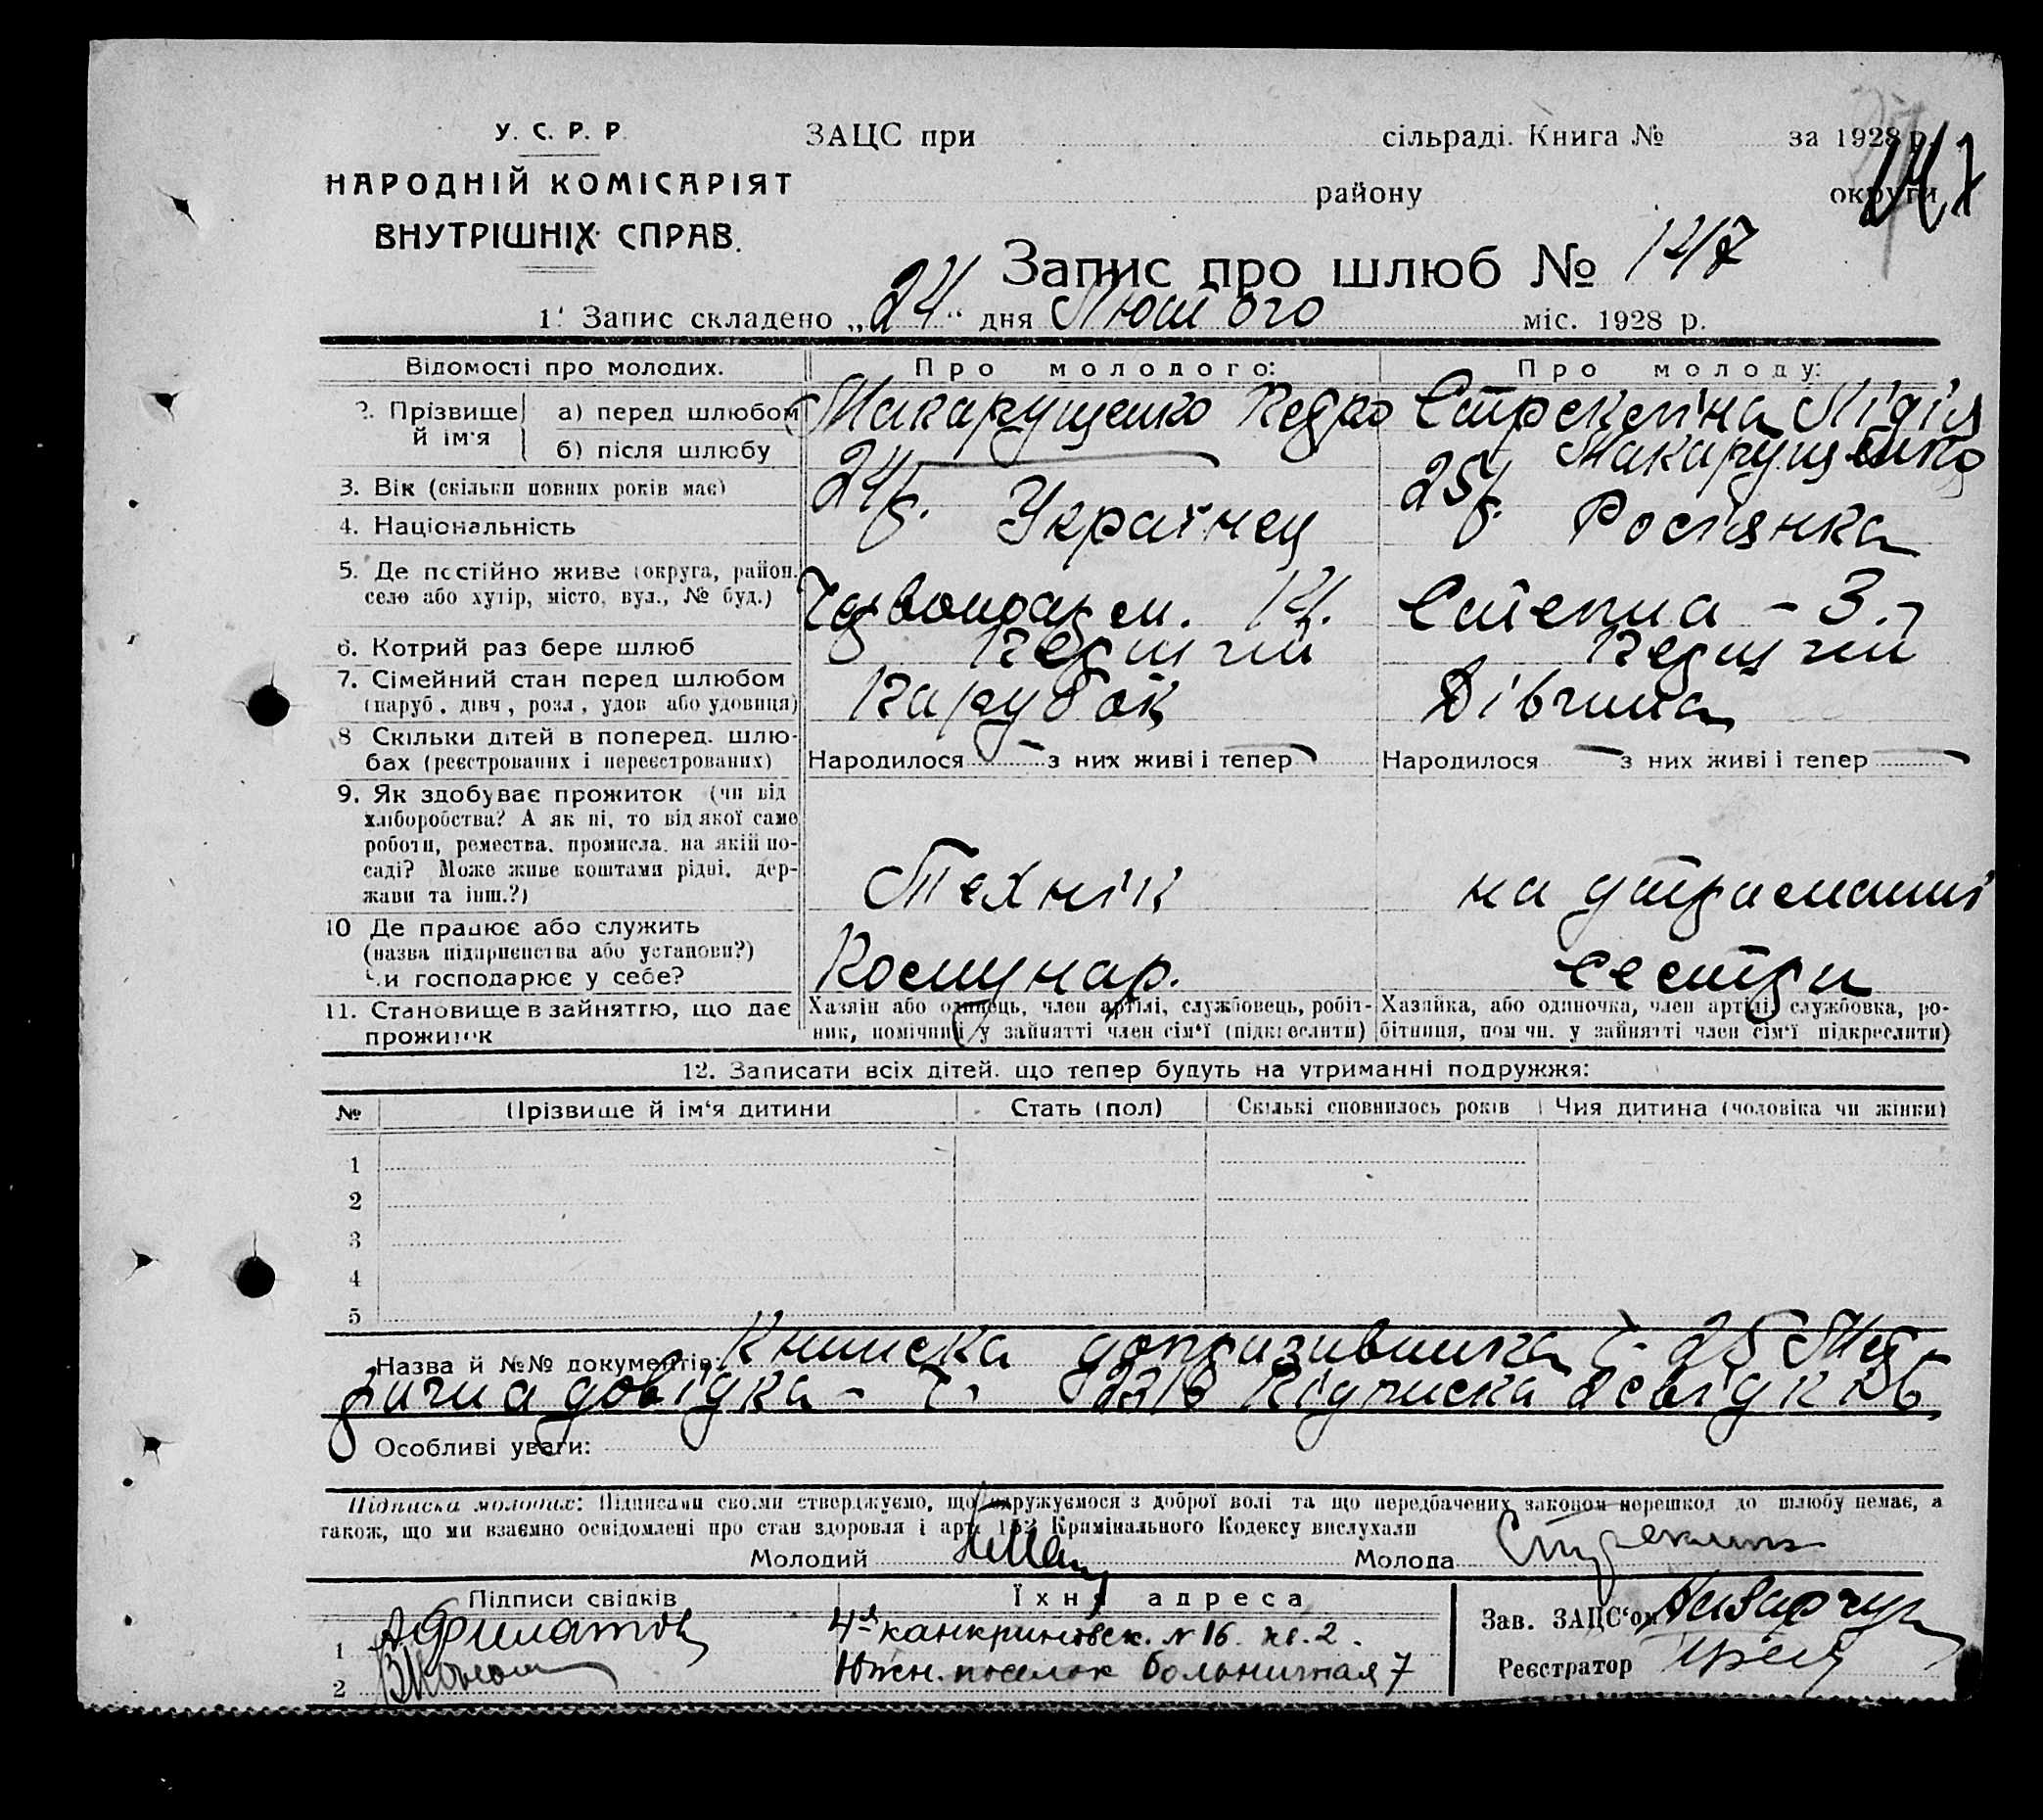 У. С. Р. Р.
НАРОДНІЙ КОМІСАРІЯТ
ВНУТРІШНІХ СПРАВ.
ЗАЦС при сільраді. Книга № за 1928 р.
району округи
147
Запис про шлюб № 147
1. Запис складено „24“ дня Лютого міс. 1928 р.
Відомості про молодих. Про молодого: Про молоду:
2. Прізвище й ім'я
а) перед шлюбом Макарущенко Педро Стрекліна Лідія
б) після шлюбу Макарущенко
3. Вік (скільки повних років має) 24р. 25р.
4. Національність Українец Росіянка
5. Де постійно живе (округа, район, село або хутір, місто, вул., № буд.) Степна - 3.
6. Котрий раз бере шлюб Перший Перший
7. Сімейний стан перед шлюбом Парубок Дівчина
(паруб., дівч., розл., удов. або удовиця)
8 Скільки дітей в поперед. шлюбах (реєстрованих і нереєстрованих) Народилося — з них живі і тепер — Народилося — з них живі і тепер —
9. Як здобуває прожиток (чи від
хліборобства? А як ні, то від якої саме
роботи, ремества, промисла, на якій по-
саді? Може живе коштами рідні, дер-
жави та інш.?) Технік на утриманні
10 Де працює або служить
(назва підприємства або установи?)
Чи господарює у себе? Комунар. сестри
11. Становище в зайняттю, що дає
прожиток
Хазяін або одинець, член артілі, службовець, робіт-
ник, помічний у зайнятті член сім'ї (підкреслити)
Хазяйка, або одиночка, член артілі, службовка, ро-
бітниця, помічн. у зайнятті член сім'ї підкреслити)
12. Записати всіх дітей, що тепер будуть на утриманні подружжя:
№ Прізвище й ім'я дитини Стать (пол) Скількі сповнилось років Чия дитина (чоловіка чи жінки)
1
2
3
4
5
Назва й №№ документів: Книжка допризивника ч. 25 Мед-
ична довідка - ч. Підписка
Особливі уваги:
Підписка молодих: Підписами своїми стверджуємо, що одружуємося з доброї волі та що передбачених законом перешкод до шлюбу немає, а
також, що ми взаємно освідомлені про стан здоровля і арт. 152 Кримінального Кодексу вислухали
Молодий Молода Стреклина
Підписи свідків Їхня адреса
1 А Филатов 4я канкриновск. № 16. кв. 2.
2 Южн. поселок Больничная 7
Зав. ЗАЦС'ом
Реєстратор